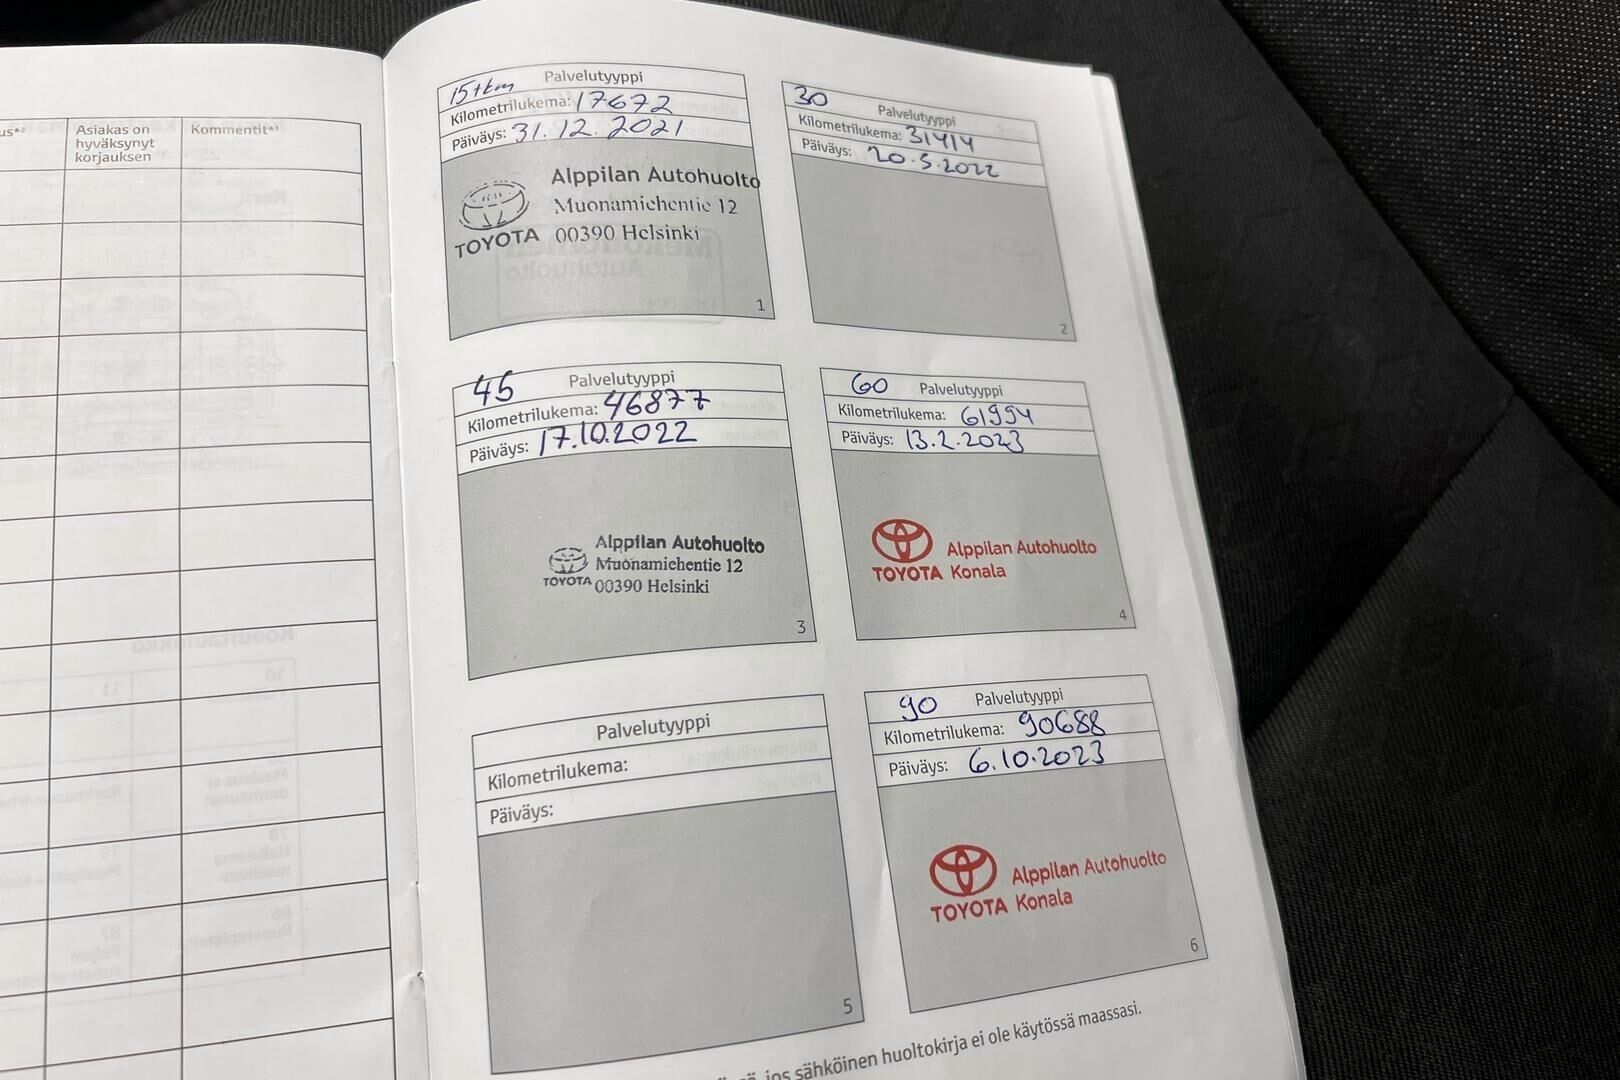 Asiakas on
hyväksynyt
korjauksen
Kommentit*³
15tkm Palvelutyyppi
Kilometrilukema: 17672
Päiväys: 31.12.2021
Alppilan Autohuolto
Muonamiehentie 12
TOYOTA 00390 Helsinki
1
30 Palvelutyyppi
Kilometrilukema: 31414
Päiväys: 20.5.2022
2
45 Palvelutyyppi
Kilometrilukema: 46877
Päiväys: 17.10.2022
Alppilan Autohuolto
Muonamiehentie 12
TOYOTA 00390 Helsinki
3
60 Palvelutyyppi
Kilometrilukema: 61994
Päiväys: 13.2.2023
Alppilan Autohuolto
TOYOTA Konala
4
Palvelutyyppi
Kilometrilukema:
Päiväys:
5
90 Palvelutyyppi
Kilometrilukema: 90688
Päiväys: 6.10.2023
Alppilan Autohuolto
TOYOTA Konala
6
jos sähköinen huoltokirja ei ole käytössä maassasi.